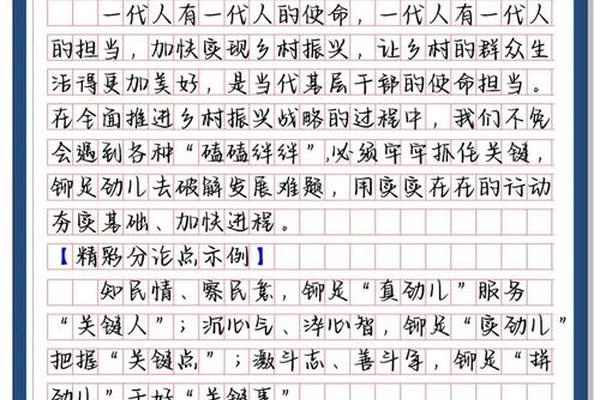 一代人有一代人的使命，一代人有一代人
的担当，加快实现乡村振兴，让乡村的群众生
活得更加美好，是当代基层干部的使命担当。
在全面推进乡村振兴战略的过程中，我们不免
会遇到各种“磕磕绊绊”，必须牢牢抓住关键，
铆足劲儿去破解发展难题，用实实在在的行动
夯实基础、加快进程。
【精彩分论点示例】
知民情、察民意，铆足“真劲儿”服务
“关键人”；沉心气、淬心智，铆足“实劲儿”
把握“关键点”；激斗志、善斗争，铆足“拼
劲儿”干好“关键事”